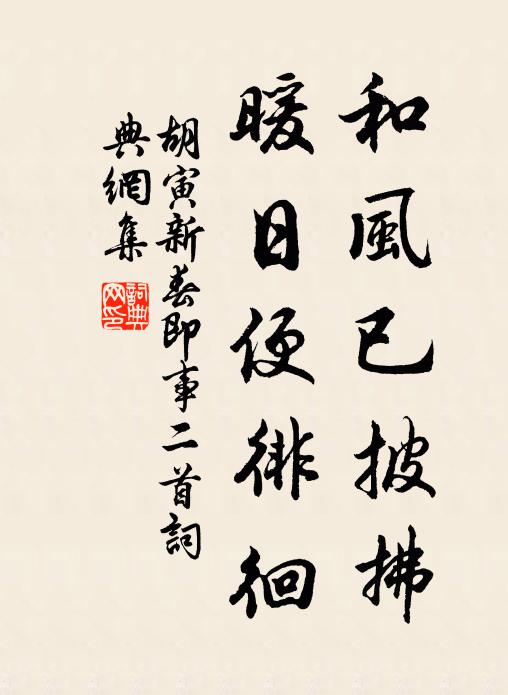 和風已披拂
暖日便徘徊
胡寅新春即事二首詞
典網集
詞典
网印